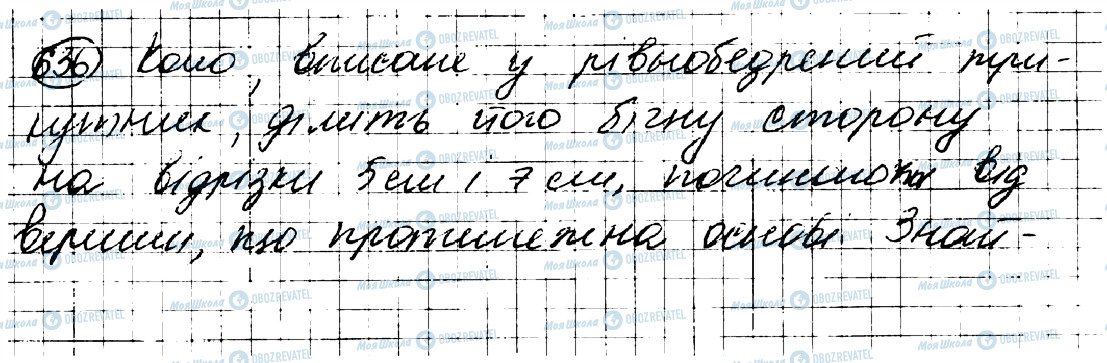 636 Коло, вписане у рівнобедрений три-
кутник, ділить його бічну сторону
на відрізки 5 см і 7 см, починаючи від
вершини, що протилежна основі Знай-
МояШкола OBOZREVATEL